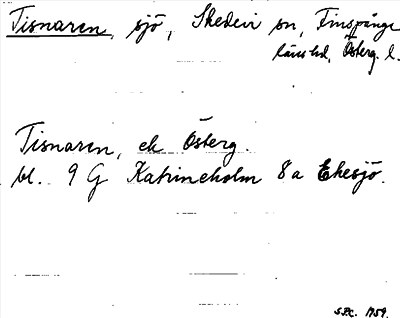 Tisnaren, sjö, Skedevi sn, Finspånga
länshd, Österg. l.
Tisnaren, ek Österg.
bl. 9 G Katrineholm 8a Ekesjö.
1959.